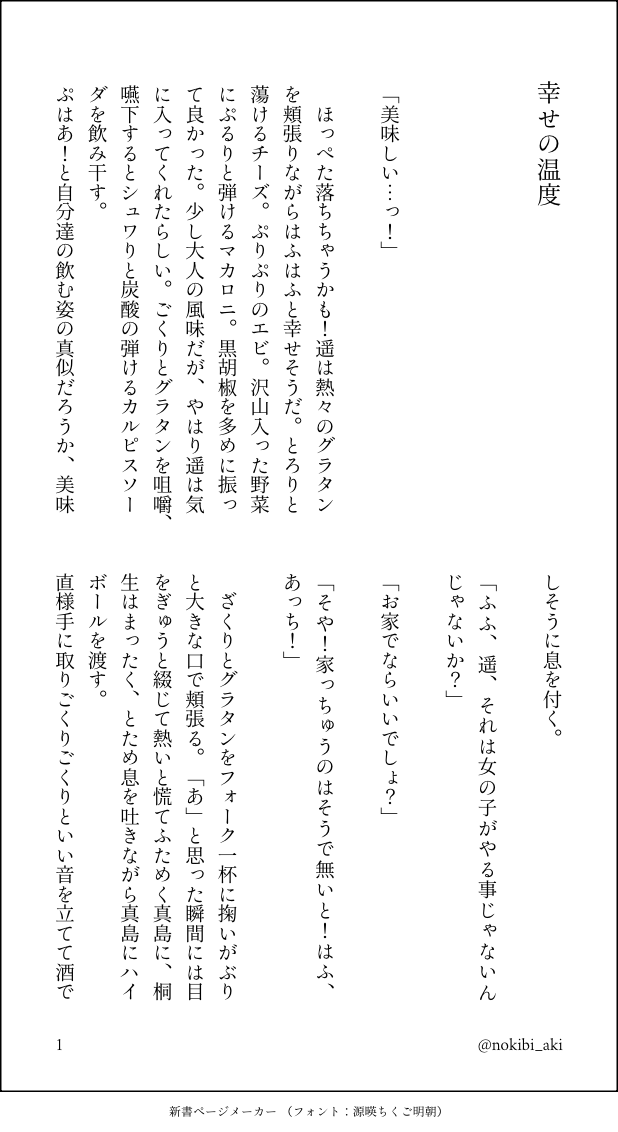 幸せの温度
「美味しい…っ！」
　ほっぺた落ちちゃうかも！遥は熱々のグラタン
を頬張りながらはふはふと幸せそうだ。とろりと
蕩けるチーズ。ぷりぷりのエビ。沢山入った野菜
にぷるりと弾けるマカロニ。黒胡椒を多めに振っ
て良かった。少し大人の風味だが、やはり遥は気
に入ってくれたらしい。ごくりとグラタンを咀嚼、
嚥下するとシュワりと炭酸の弾けるカルピスソー
ダを飲み干す。
ぷはあ！と自分達の飲む姿の真似だろうか、美味
しそうに息を付く。
「ふふ、遥、それは女の子がやる事じゃないん
じゃないか？」
「お家でならいいでしょ？」
「そや！家っちゅうのはそうで無いと！はふ、
あっち！」
　ざくりとグラタンをフォーク一杯に掬いがぶり
と大きな口で頬張る。「あ」と思った瞬間には目
をぎゅうと綴じて熱いと慌てふためく真島に、桐
生はまったく、とため息を吐きながら真島にハイ
ボールを渡す。
直様手に取りごくりごくりといい音を立てて酒で
1
@nokibi_aki
新書ページメーカー （フォント：源暎ちくご明朝）